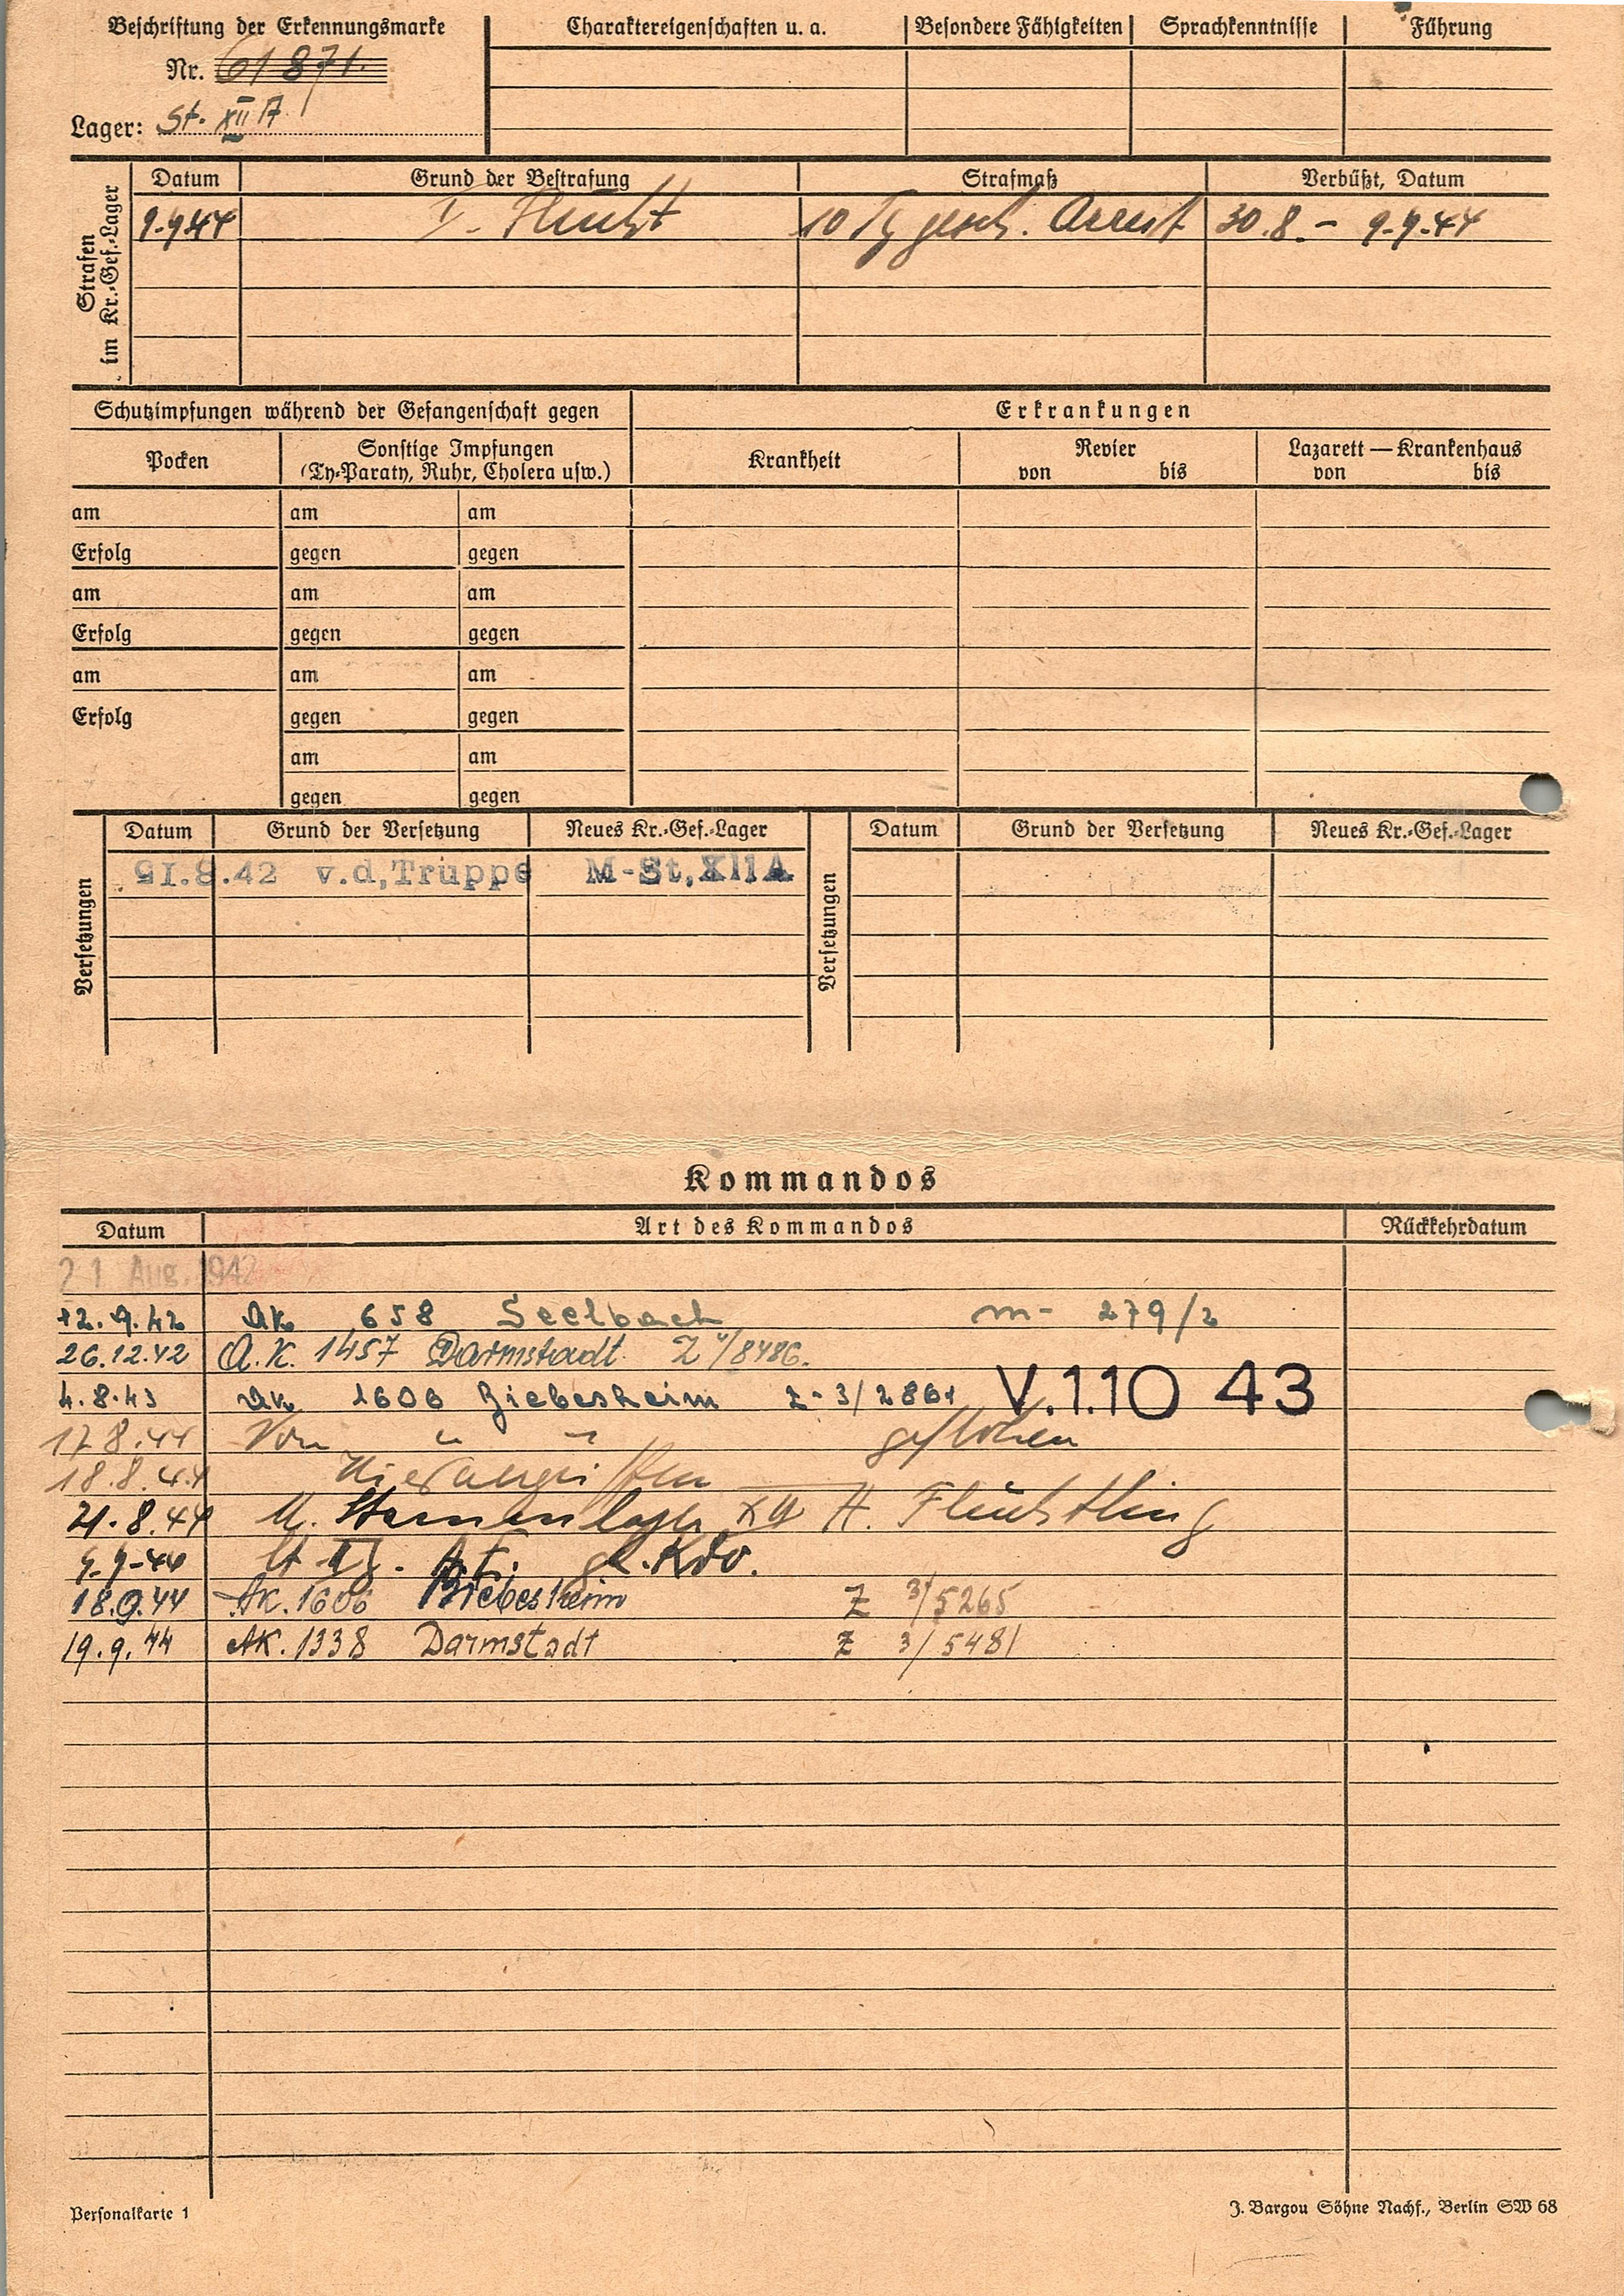 Beschriftung der Erkennungsmarke
Nr. 61871.
Lager: St. XII A
Charaktereigenschaften u. a. Besondere Fähigkeiten Sprachkenntnisse Führung
Strafen
im Kr.-Gef.-Lager
Datum Grund der Bestrafung Strafmaß Verbüßt, Datum
9.9.44 I. Flucht 10 Tg gesch. Arrest 30.8.- 9.9.44
Schutzimpfungen während der Gefangenschaft gegen Erkrankungen
Pocken Sonstige Impfungen Krankheit Revier Lazarett — Krankenhaus
(Ty-Paraty, Ruhr, Cholera usw.) von bis von bis
am am am
Erfolg gegen gegen
am am am
Erfolg gegen gegen
am am am
Erfolg gegen gegen
am am
gegen gegen
Versetzungen
Datum Grund der Versetzung Neues Kr.-Gef.-Lager
v.d,Truppe M-St,XIIA
Versetzungen
Datum Grund der Versetzung Neues Kr.-Gef.-Lager
Kommandos
Datum Art des Kommandos Rückkehrdatum
21 Aug. 1942
12.9.42 AK 658 Seelbach m- 279/2
26.12.42 A.K. 1457 Darmstadt Z 4/8486.
4.8.43 AK 1606 Biebesheim Z-3/2861 V.1.10 43
17.8.44 Von " " geflohen
18.8.44 Wiederergriffen
21.8.44 M. Stammlager XII A. Flüchtling
9.9.44 Kdo.
18.9.44 AK. 1606 Biebesheim Z 3/5265
19.9.44 AK. 1338 Darmstadt Z 3/5481
Personalkarte 1
J. Bargou Söhne Nachf., Berlin SW 68